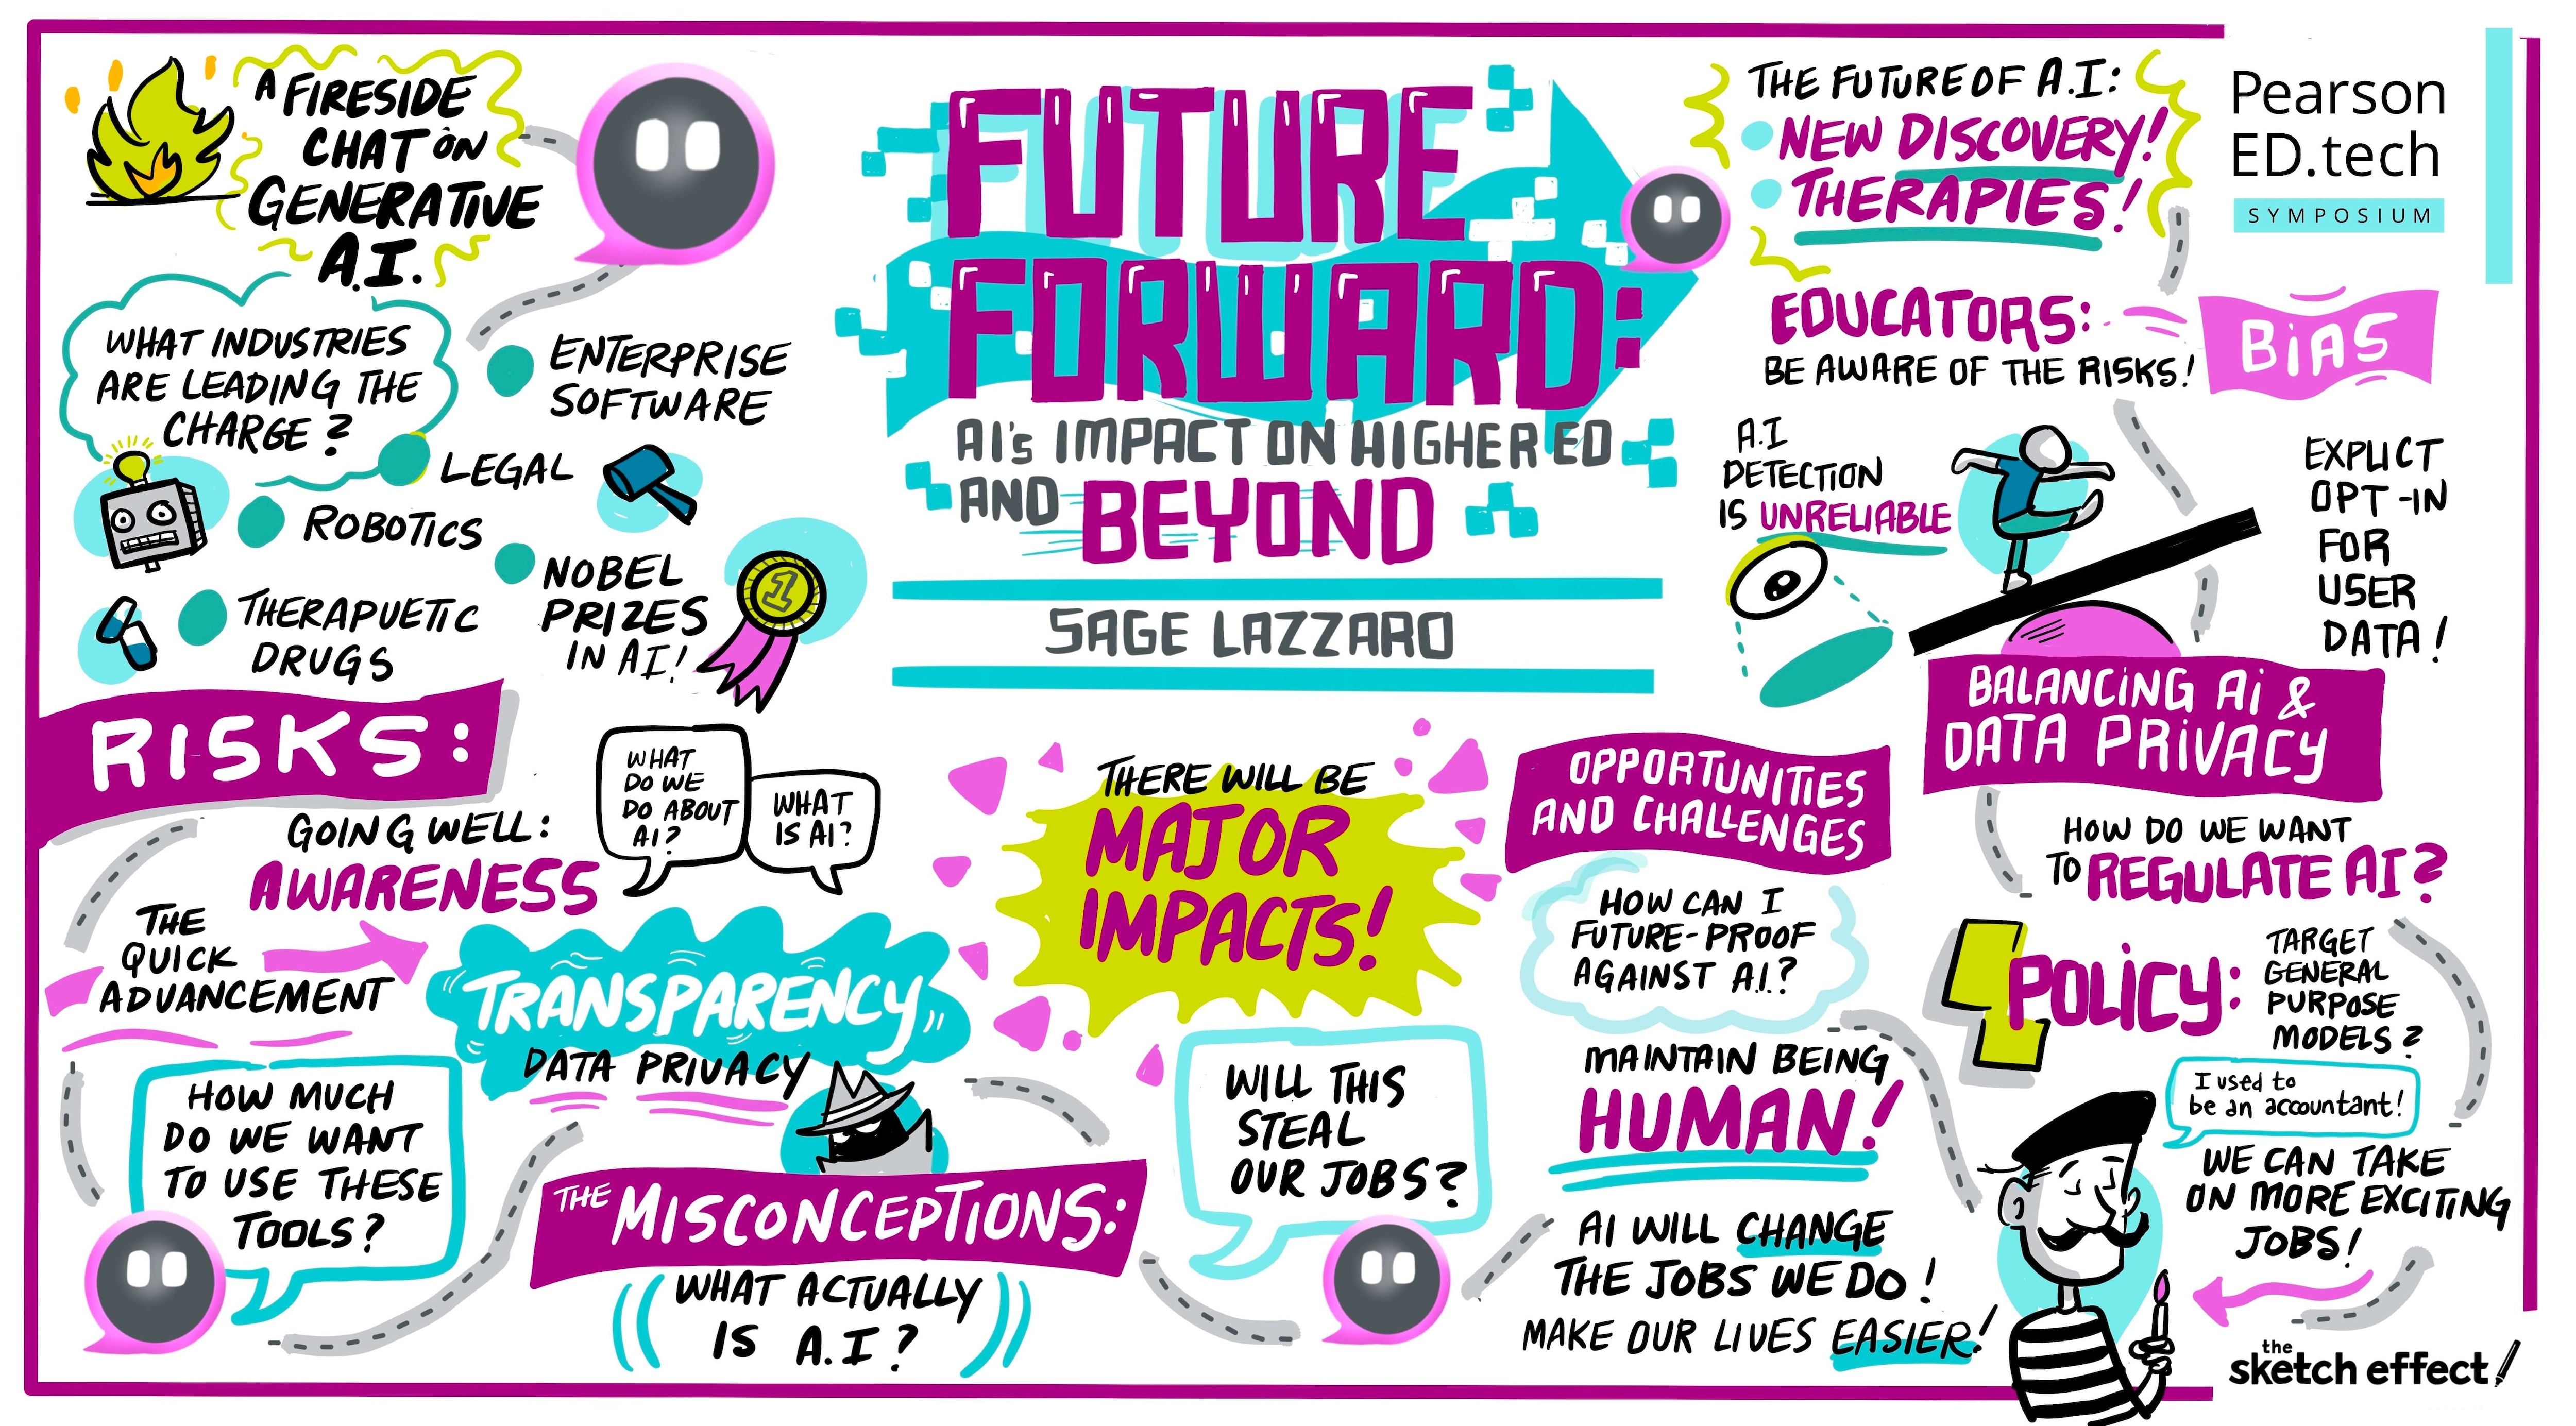 A FIRESIDE
CHAT ON
GENERATIVE
A.I.
WHAT INDUSTRIES
ARE LEADING THE
CHARGE?
ENTERPRISE
SOFTWARE
LEGAL
ROBOTICS
NOBEL
PRIZES
IN AI!
1
THERAPUETIC
DRUGS
FUTURE
FORWARD:
AI's IMPACT ON HIGHER ED
AND BEYOND
SAGE LAZZARO
THE FUTURE OF A.I:
NEW DISCOVERY!
THERAPIES!
Pearson
ED.tech
SYMPOSIUM
EDUCATORS:
BE AWARE OF THE RISKS!
BiAS
A.I
DETECTION
IS UNRELIABLE
EXPLICT
OPT-IN
FOR
USER
DATA!
BALANCING Ai &
DATA PRIVACY
RISKS:
GOING WELL:
AWARENESS
WHAT
DO WE
DO ABOUT
AI?
WHAT
IS AI?
THE
QUICK
ADVANCEMENT
TRANSPARENCY
DATA PRIVACY
HOW MUCH
DO WE WANT
TO USE THESE
TOOLS?
THE MISCONCEPTIONS:
WHAT ACTUALLY
IS A.I?
THERE WILL BE
MAJOR
IMPACTS!
WILL THIS
STEAL
OUR JOBS?
OPPORTUNITIES
AND CHALLENGES
HOW CAN I
FUTURE-PROOF
AGAINST A.I.?
MAINTAIN BEING
HUMAN!
AI WILL CHANGE
THE JOBS WE DO!
MAKE OUR LIVES EASIER!
HOW DO WE WANT
TO REGULATE AI?
POLICY:
TARGET
GENERAL
PURPOSE
MODELS?
I used to
be an accountant!
WE CAN TAKE
ON MORE EXCITING
JOBS!
the
sketch effect